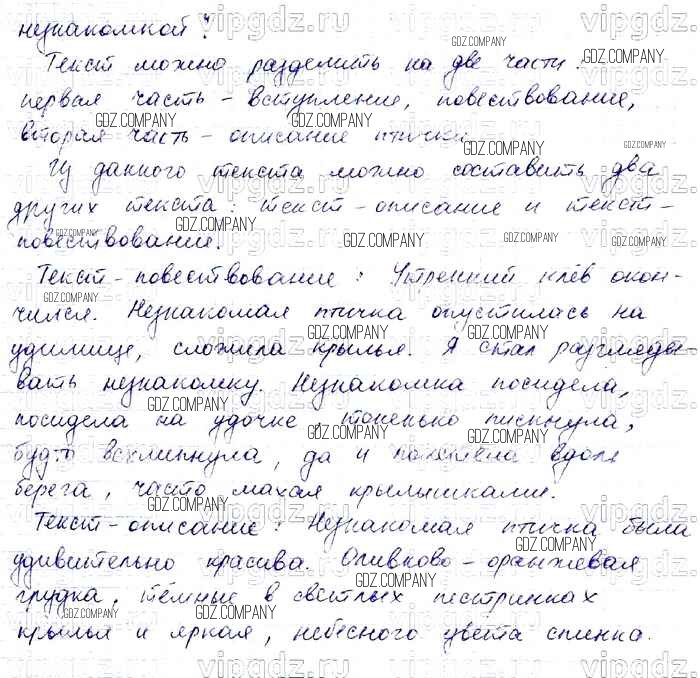 незнакомкой?
Текст можно разделить на две части:
первая часть – вступление, повествование,
вторая часть – описание птички.
Из данного текста можно составить два
других текста: текст-описание и текст-
повествование.
Текст-повествование: Утренний клёв окон-
чился. Незнакомая птичка опустилась на
удилище, сложила крылья. Я стал разгляды-
вать незнакомку. Незнакомка посидела,
посидела на удочке, тоненько пискнула,
будто всхлипнула, да и полетела вдоль
берега, часто махая крылышками.
Текст-описание: Незнакомая птичка была
удивительно красива. Оливково-оранжевая
грудка, тёмные в светлых пестринках
крылья и яркая, небесного цвета спинка.